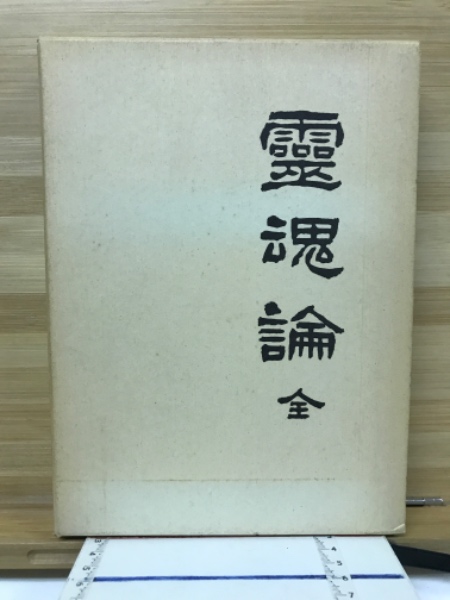 靈魂論
全